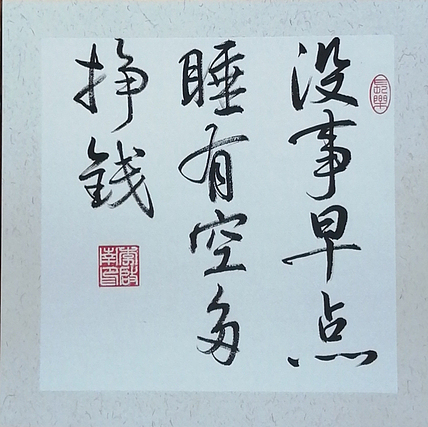 没事早点
睡有空多
挣钱
長樂